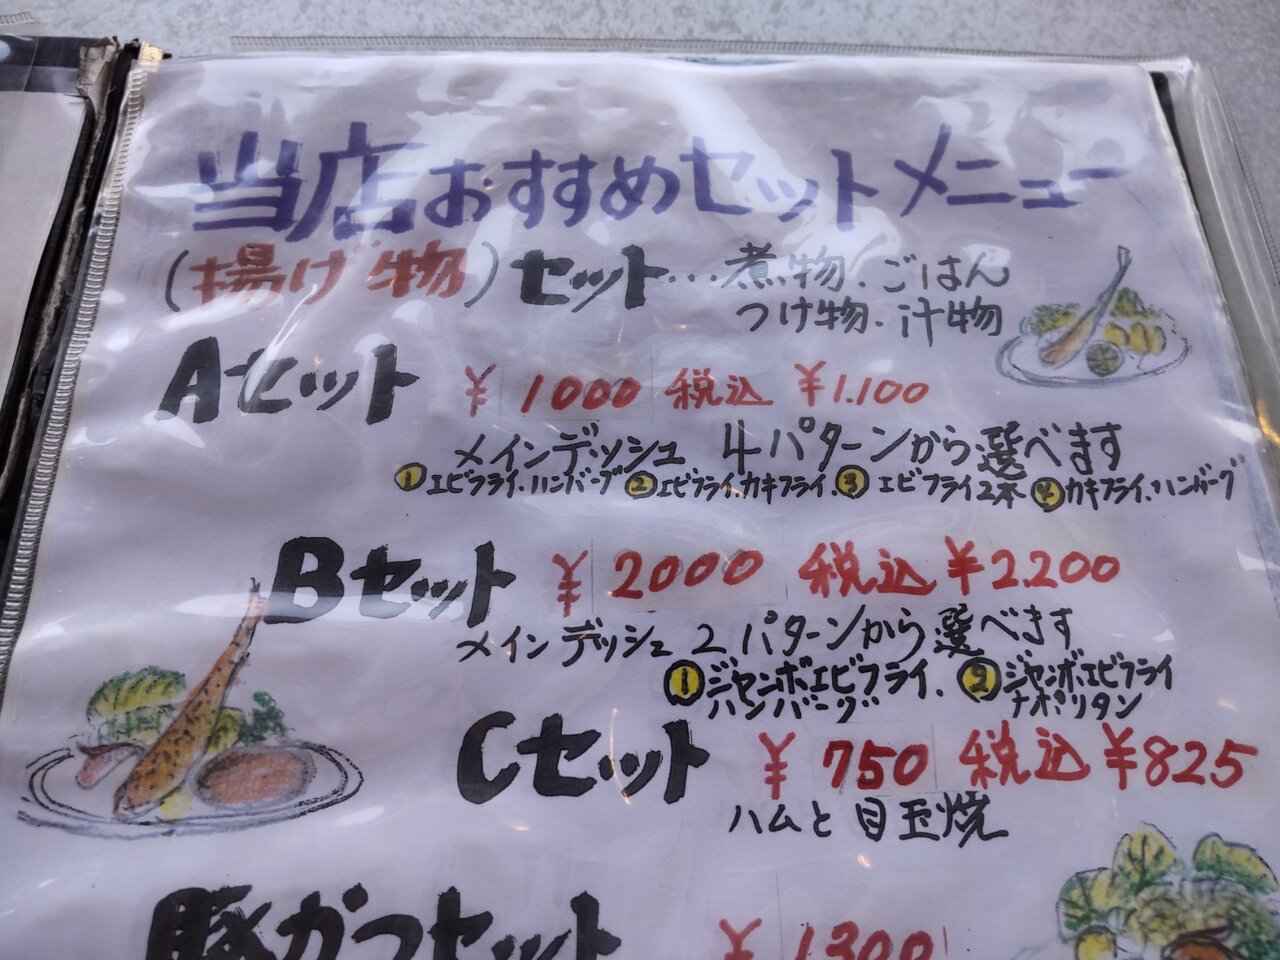 当店おすすめセットメニュー
(揚げ物)セット…煮物.ごはん
つけ物.汁物
Aセット ¥1000 税込 ¥1.100
メインディッシュ 4パターンから選べます
①エビフライ.ハンバーグ ②エビフライ.カキフライ. ③エビフライ2本 ④カキフライ.ハンバーグ
Bセット ¥2000 税込 ¥2.200
メインディッシュ 2パターンから選べます
①ジャンボエビフライ. ②ジャンボエビフライ
ハンバーグ ナポリタン
Cセット ¥750 税込 ¥825
ハムと目玉焼
豚かつセット ¥1300